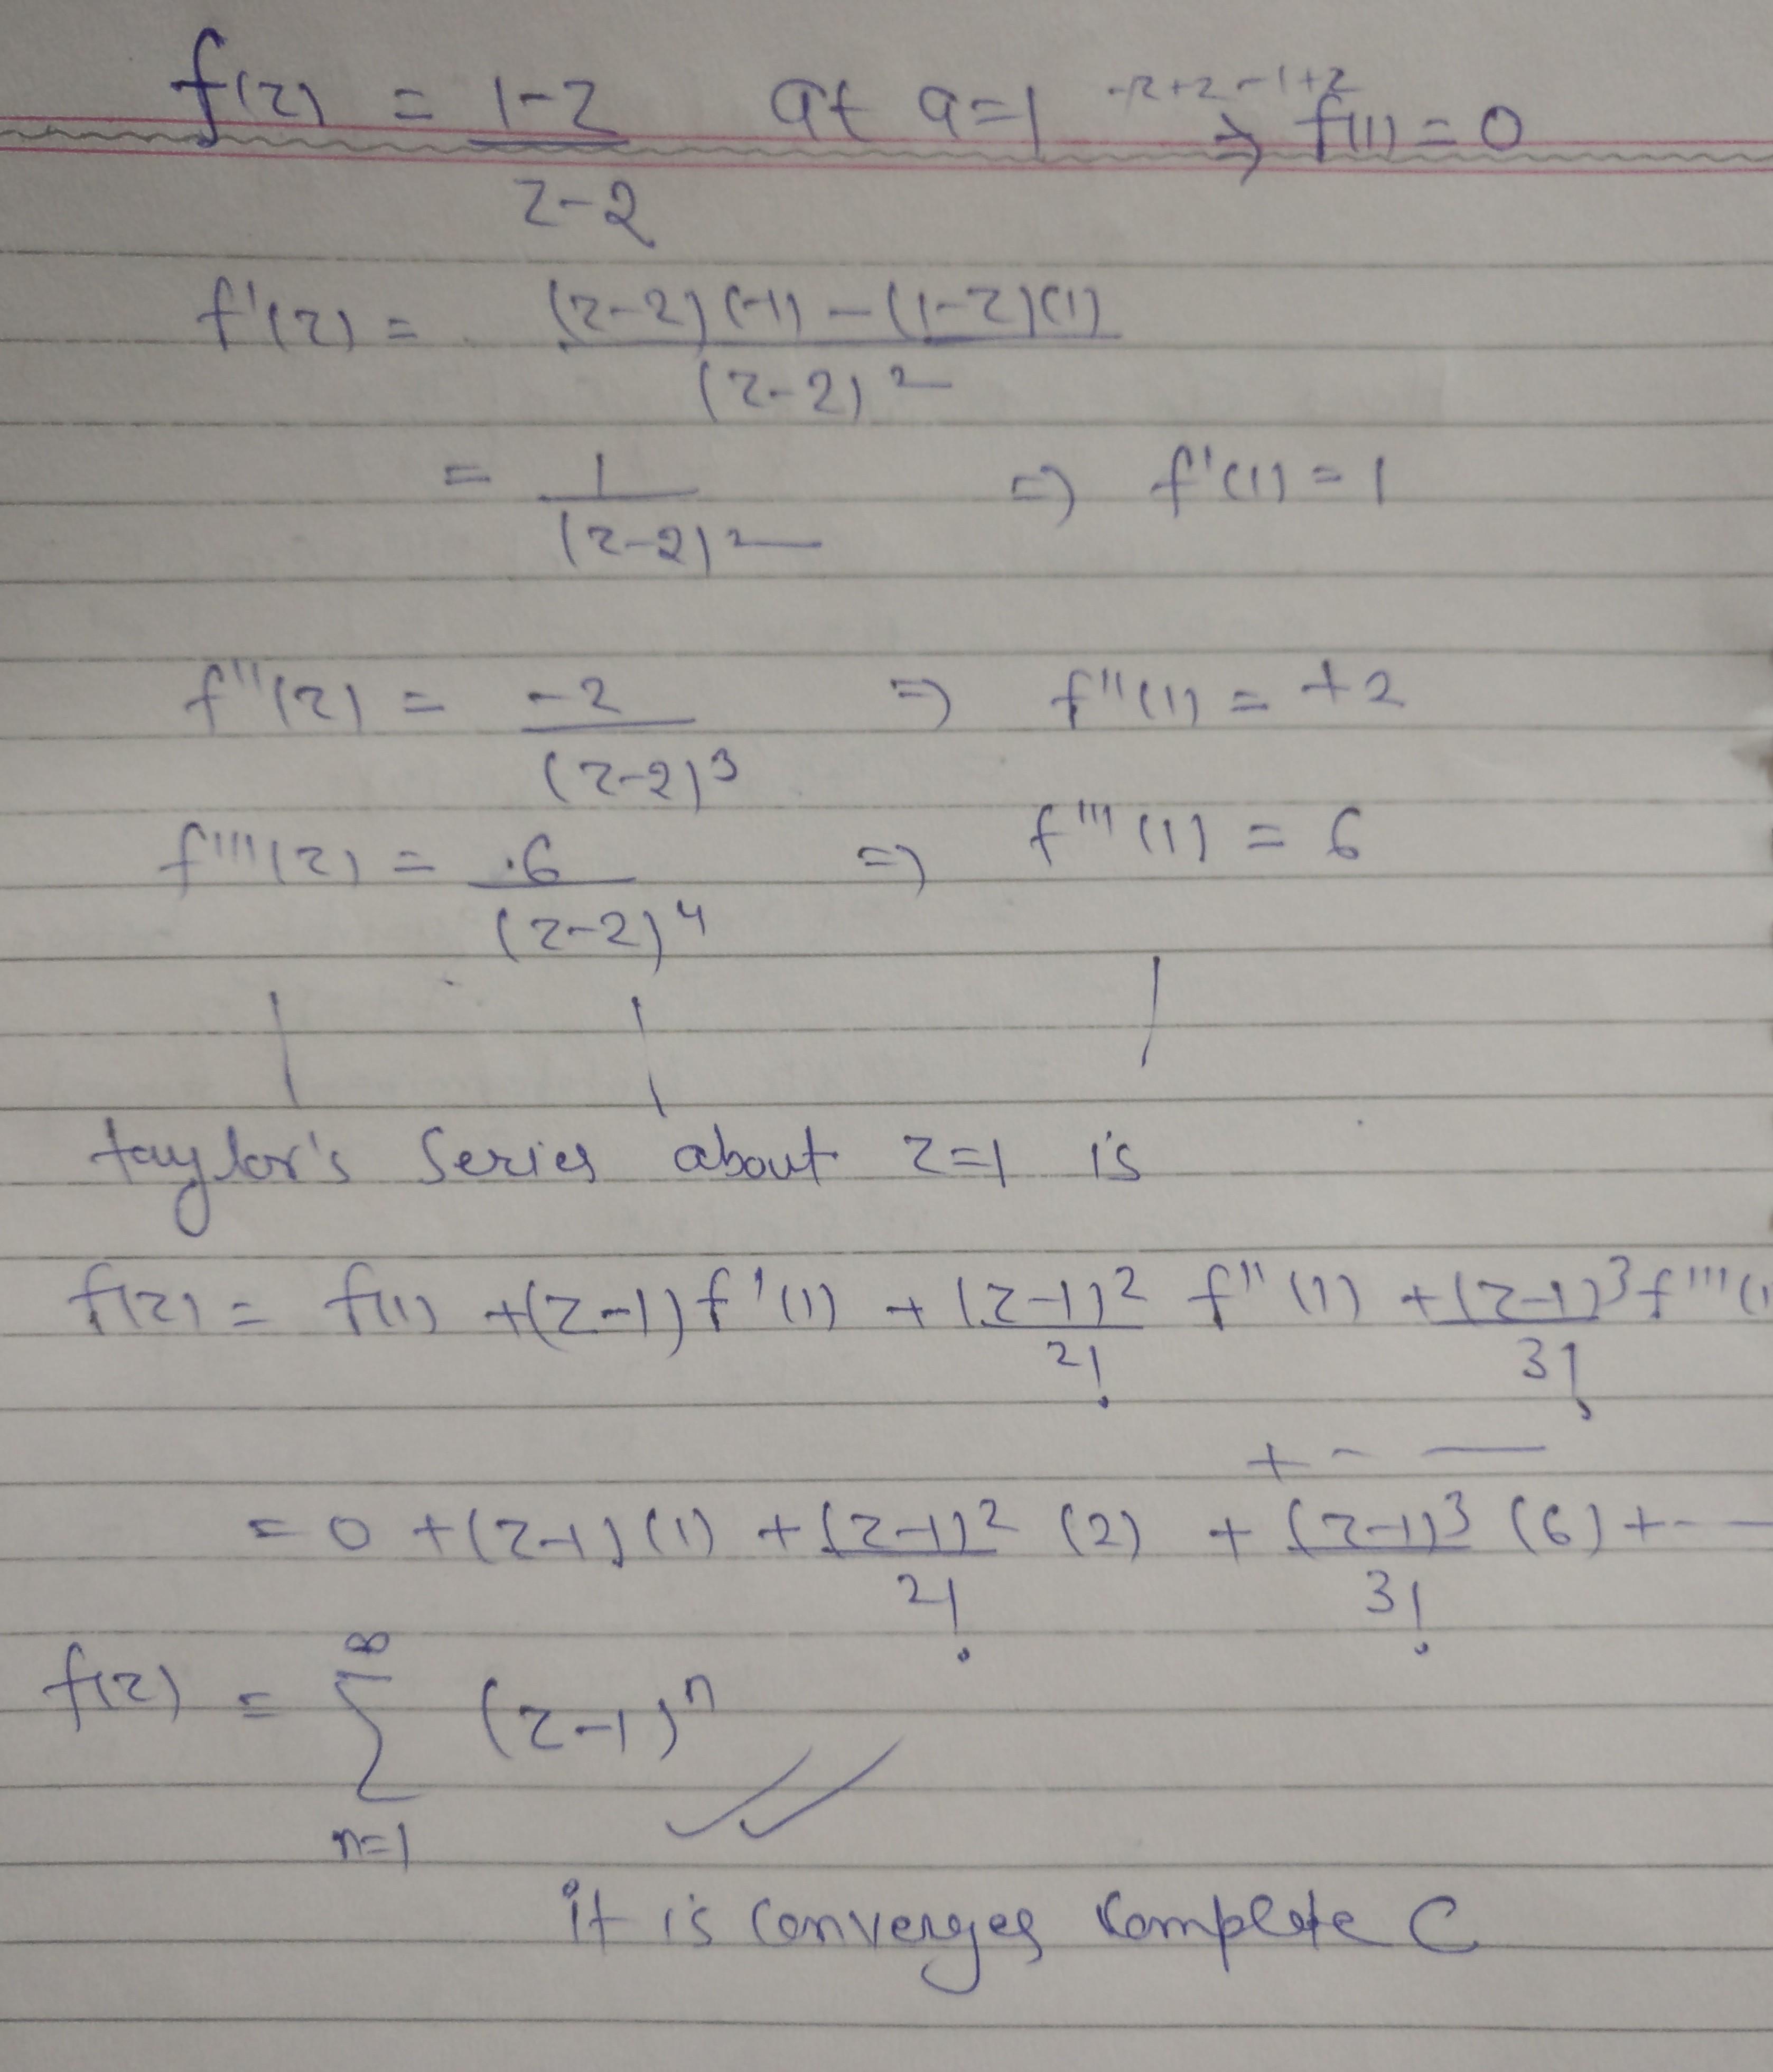 f(z) = 1-z/z-2 at a=1 -z+2-1+z ⇒ f(1) = 0
f'(z) = (z-2)(-1) - (1-z)(1)/(z-2)²
= 1/(z-2)² ⇒ f'(1) = 1
f''(z) = -2/(z-2)³ ⇒ f''(1) = +2
f'''(z) = 6/(z-2)⁴ ⇒ f'''(1) = 6
taylor's Series about z=1 is
f(z) = f(1) + (z-1) f'(1) + (z-1)²/2! f''(1) + (z-1)³/3! f'''(1
+ - —
= 0 + (z-1)(1) + (z-1)²/2! (2) + (z-1)³/3! (6) + - —
f(z) = ∞ Σ n=1 (z-1)ⁿ
it is converges Complete C